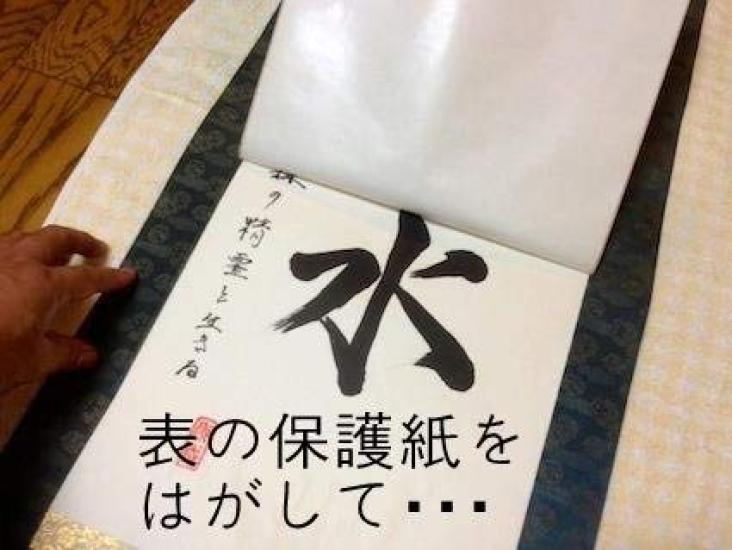 水
の精霊と生きる
表の保護紙を
はがして・・・